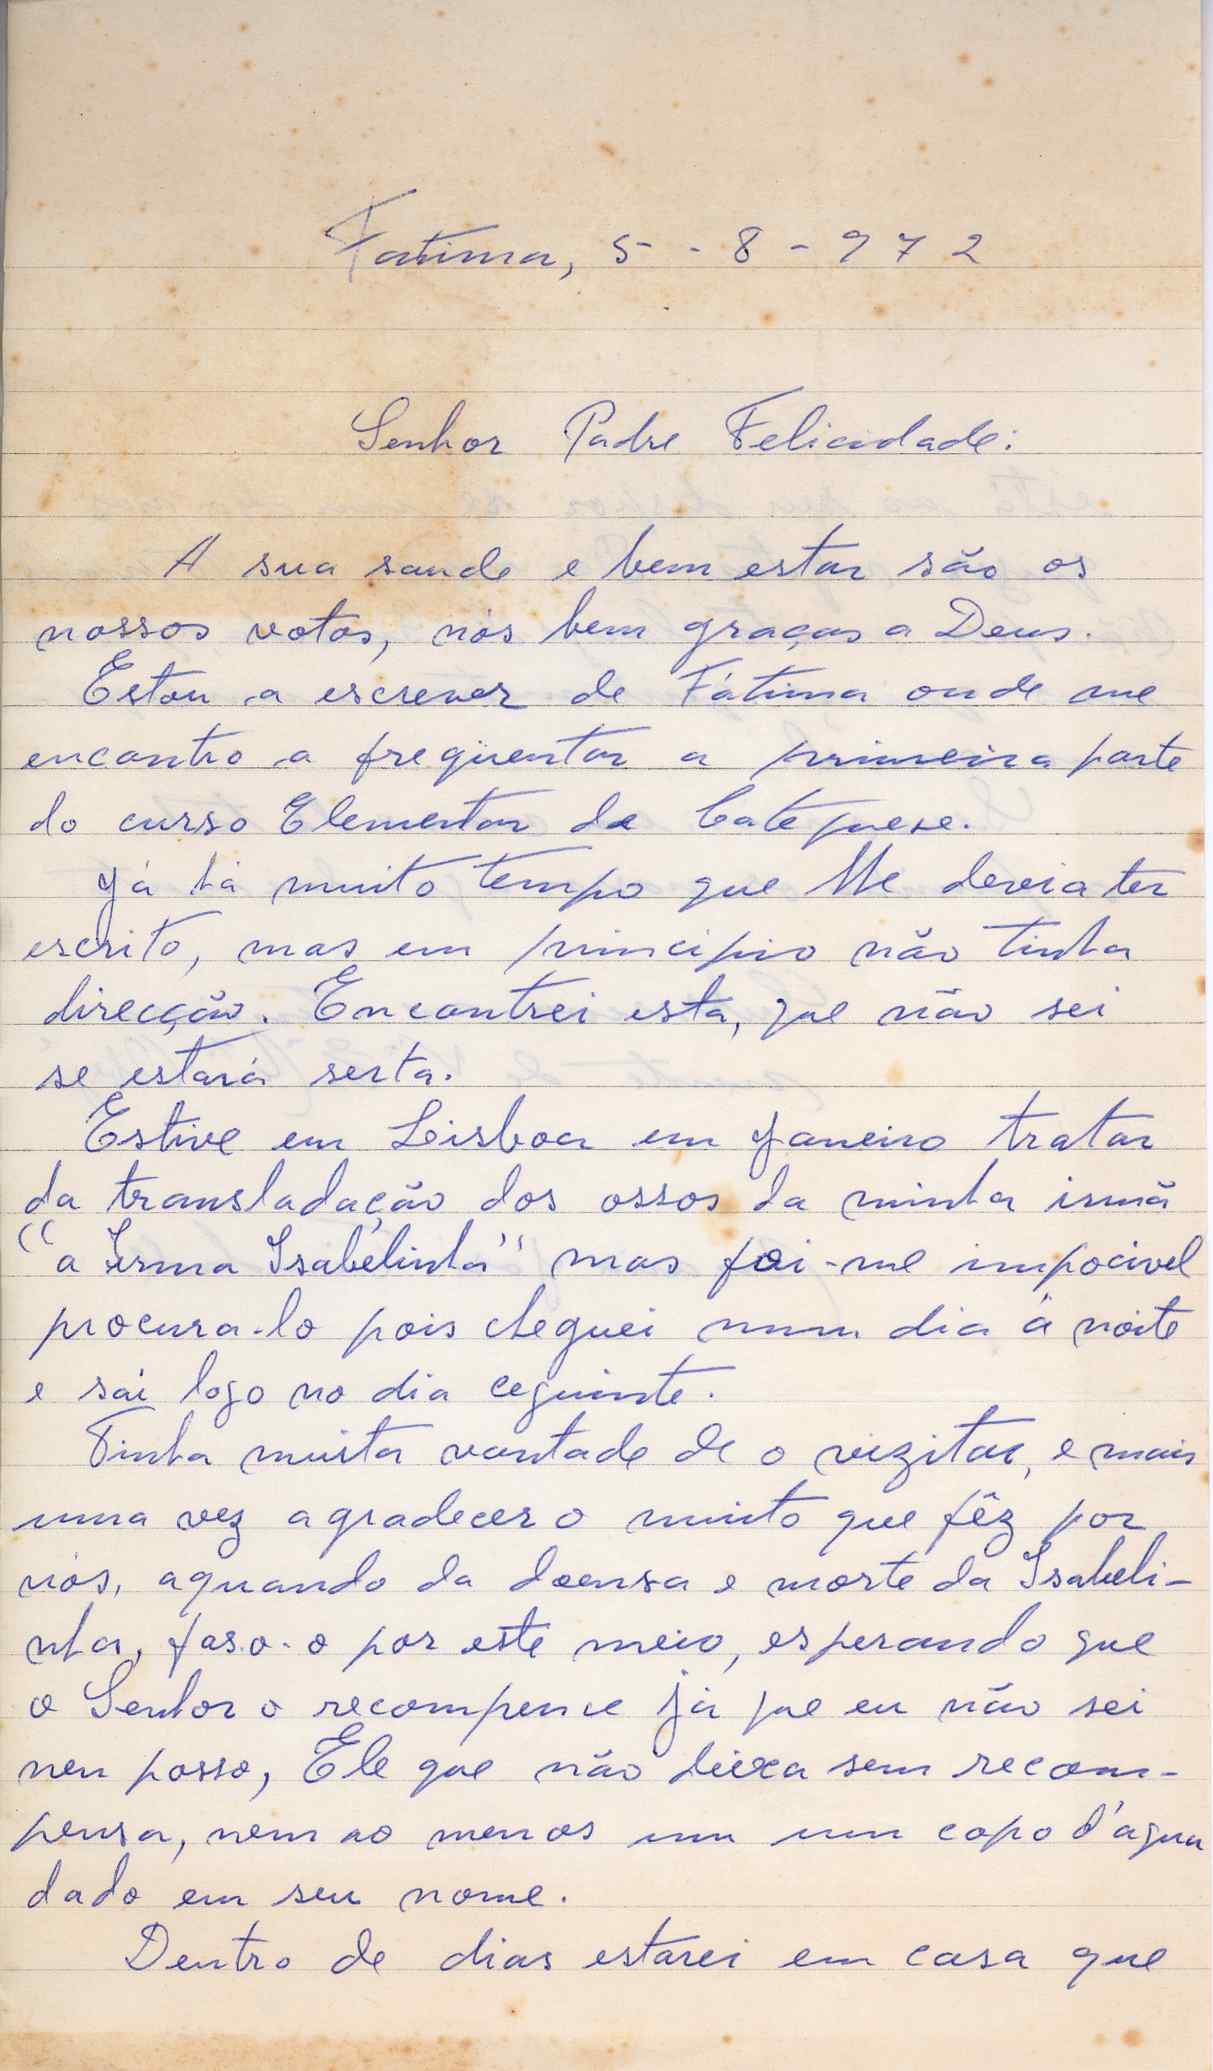 Fatima, 5 - 8 - 972
Senhor Padre Felicidade:
A sua saude e bem estar são os
nossos votos, nós bem graças a Deus.
Estou a escrever de Fátima onde me
encontro a freqüentar a primeira parte
do curso Elementar de Catequese.
Já há muito tempo que lhe devia ter
escrito, mas em principio não tinha
direcção. Encontrei esta, que não sei
se estará serta.
Estive em Lisboa em Janeiro tratar
da transladação dos ossos da minha irmã
"a Irma Isabelinha" mas foi-me impocivel
procura-lo pois cheguei num dia à noite
e sai logo no dia ceguinte.
Tinha muita vontade de o vizitar, e mais
uma vez agradecer o muito que fêz por
nós, aquando da doensa e morte da Isabeli-
nha, faso-o por este meio, esperando que
o Senhor o recompense já que eu não sei
nen posso, Ele que não deixa sem recom-
pensa, nem ao menos um um copo d'água
dado em seu nome.
Dentro de dias estarei em casa que